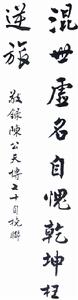 混世虛名自愧乾坤枉
逆旅
敬錄陳公天博七十自挽聯